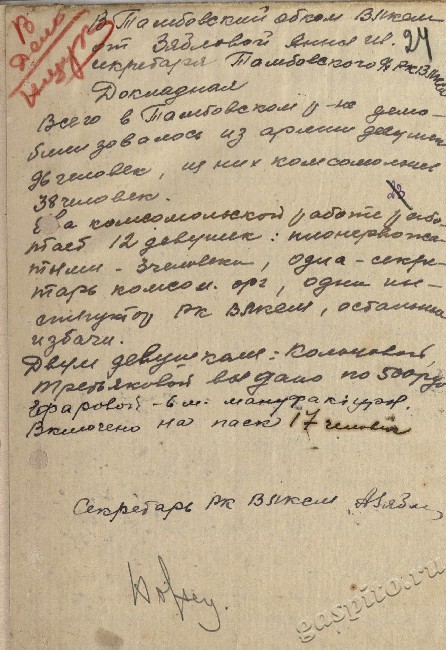 В
дело
24
В Тамбовский обком ВЛКСМ
от Зябловой Анны Ив.
секретаря Тамбовского РК ВЛКСМ
Докладная
Всего в Тамбовском р-не демо-
билизовалось из армии девушек
96 человек, из них комсомолок
38 человек.
23
На комсомольской работе рабо-
тает 12 девушек: пионервожа-
тыми - 3 человека, одна - секре-
тарь комсом. орг, один ин-
структор РК ВЛКСМ, остальные
избачи.
Двум девушкам:
Третьяковой выдано по 500 руб
6 м. мануфактуры.
Включено на паек 17 человек
Секретарь РК ВЛКСМ АЗябл
gaspito.ru